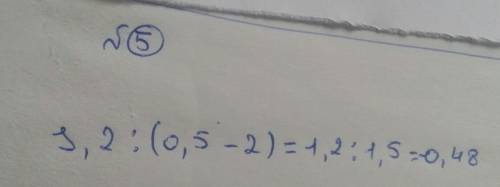 N5
1,2:(0,5-2)=1,2:1,5=-0,48